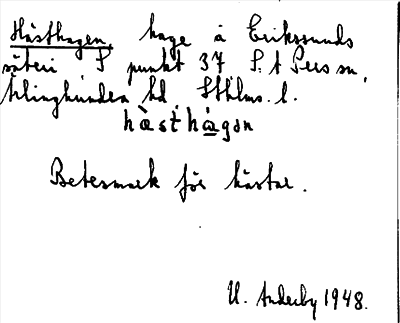 Hästhagen, hage å Erikssunds
säteri S punkt 37 S:t Pers sn,
Erlinghundra hd, Sthlms. l.
hæ̀sthá̱gən
Betesmark för hästar.
U. Anderby 1948.